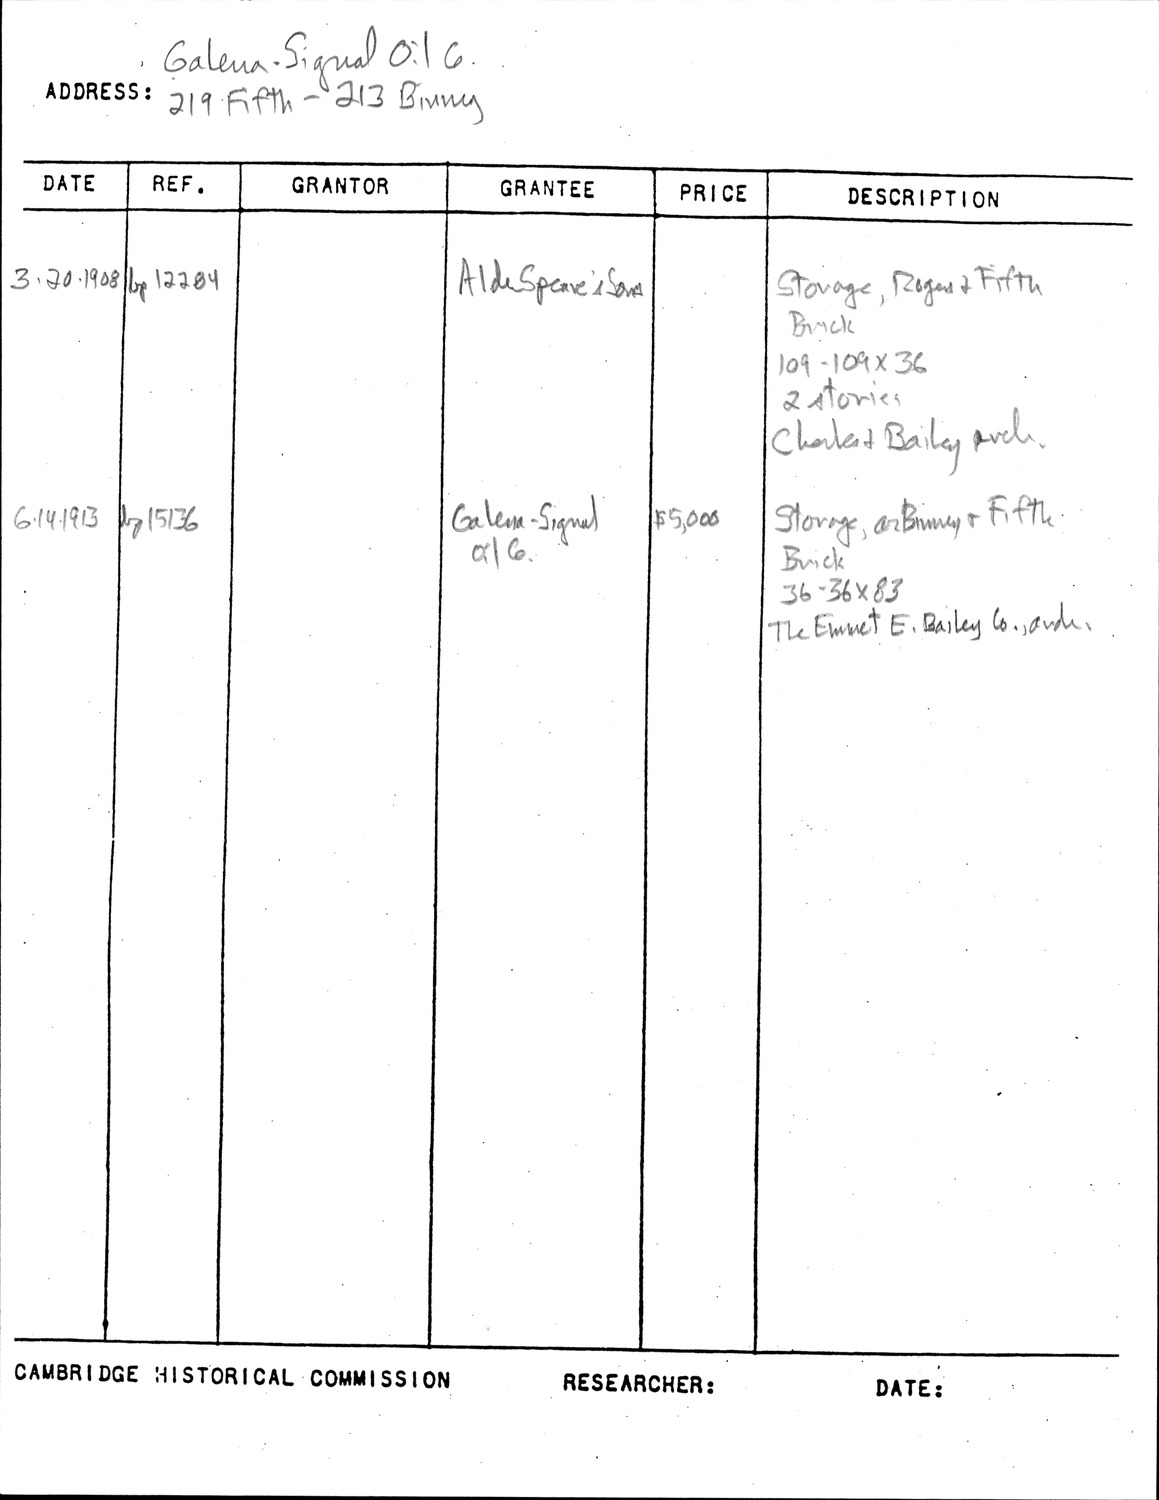 Galena-Signal Oil Co.
ADDRESS: 219 Fifth - 213 Binney
DATE REF. GRANTOR GRANTEE PRICE DESCRIPTION
3.20.1908 bp 12284 Alde Speare's Sons Storage, Rogers & Fifth
Brick
109-109x36
2 stories
Bailey arch.
6.14.1913 bp 15136 Galena-Signal $5,000 Storage, Binney & Fifth
Oil Co. Brick
36-36x83
The Emmet E. Bailey Co., arch.
CAMBRIDGE HISTORICAL COMMISSION RESEARCHER: DATE: